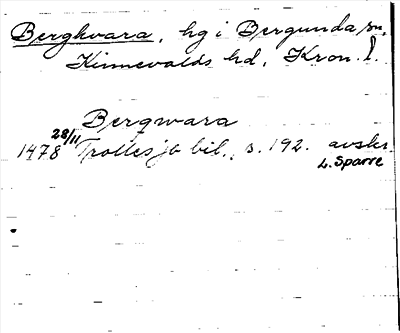 Berghvara, hg i Bergunda sn,
Kinnevalds hd, Kron. l.
Bergwara
1478 28/11 Trolles jb bil., s. 192. avskr.
L. Sparre